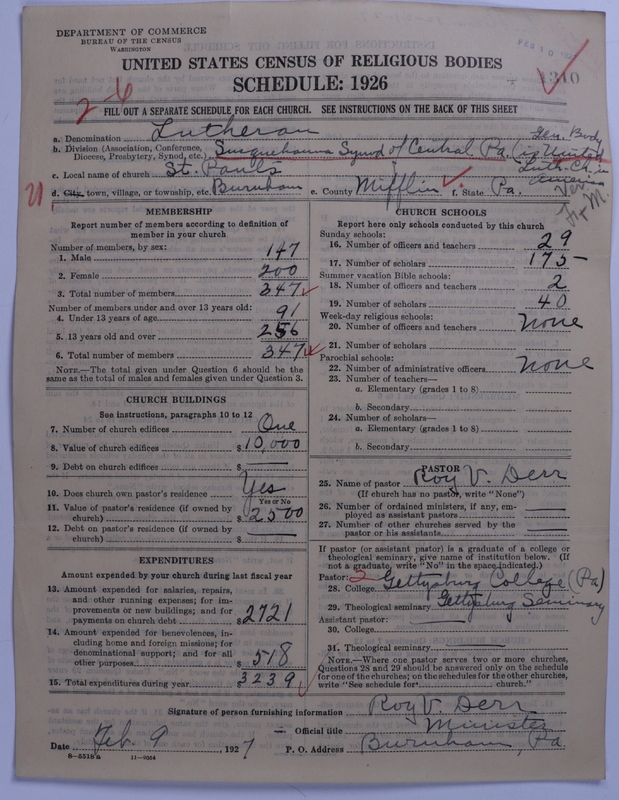 DEPARTMENT OF COMMERCE
BUREAU OF THE CENSUS
WASHINGTON
FEB 10 1927
1310
UNITED STATES CENSUS OF RELIGIOUS BODIES
SCHEDULE: 1926
2-6
FILL OUT A SEPARATE SCHEDULE FOR EACH CHURCH. SEE INSTRUCTIONS ON THE BACK OF THIS SHEET
a. Denomination Lutheran
b. Division (Association, Conference, Diocese, Presbytery, Synod, etc.) Susquehanna Synod of Central Pa. (Gen. Body is United Luth. Ch. in America
c. Local name of church St. Paul's
d. City, town, village, or township, etc. Burnham e. County Mifflin f. State Pa.
21
MEMBERSHIP
Report number of members according to definition of
member in your church
Number of members, by sex:
1. Male 147
2. Female 200
3. Total number of members 347
Number of members under and over 13 years old:
4. Under 13 years of age 91
5. 13 years old and over 256
6. Total number of members 347
NOTE.—The total given under Question 6 should be
same as the total of males and females given under Question 3.
CHURCH BUILDINGS
See instructions, paragraphs 10 to 12
7. Number of church edifices One
8. Value of church edifices $10,000
9. Debt on church edifices $ —
10. Does church own pastor's residence Yes
Yes or No
11. Value of pastor's residence (if owned by
church) $2500
12. Debt on pastor's residence (if owned by
church) $ —
EXPENDITURES
Amount expended by your church during last fiscal year
13. Amount expended for salaries, repairs,
and other running expenses; for im-
provements or new buildings; and for
payments on church debt $2721
14. Amount expended for benevolences, in-
cluding home and foreign missions; for
denominational support; and for all
other purposes $518
15. Total expenditures during year $3239
CHURCH SCHOOLS
Report here only schools conducted by this church
Sunday schools:
16. Number of officers and teachers 29
17. Number of scholars 175
Summer vacation Bible schools:
18. Number of officers and teachers 2
19. Number of scholars 40
Week-day religious schools:
20. Number of officers and teachers none
21. Number of scholars
Parochial schools:
22. Number of administrative officers none
23. Number of teachers—
a. Elementary (grades 1 to 8)
b. Secondary
24. Number of scholars—
a. Elementary (grades 1 to 8)
b. Secondary
PASTOR
25. Name of pastor Roy V. Derr
(If church has no pastor, write "None")
26. Number of ordained ministers, if any, em-
ployed as assistant pastors —
27. Number of other churches served by the
pastor or his assistants —
If pastor (or assistant pastor) is a graduate of a college or
theological seminary, give name of institution below. (If
not a graduate, write "No" in the space indicated.)
Pastor: 2
28. College Gettysburg College (Pa)
29. Theological seminary Gettysburg Seminary
Assistant pastor:
30. College —
31. Theological seminary —
NOTE.—Where one pastor serves two or more churches,
Questions 28 and 29 should be answered only on the schedule
for one of the churches; on the schedules for the other churches,
write "See schedule for church."
Signature of person furnishing information Roy V. Derr
Official title Minister
Date Feb. 9 1927 P. O. Address Burnham, Pa.
8—5518a 11—9554